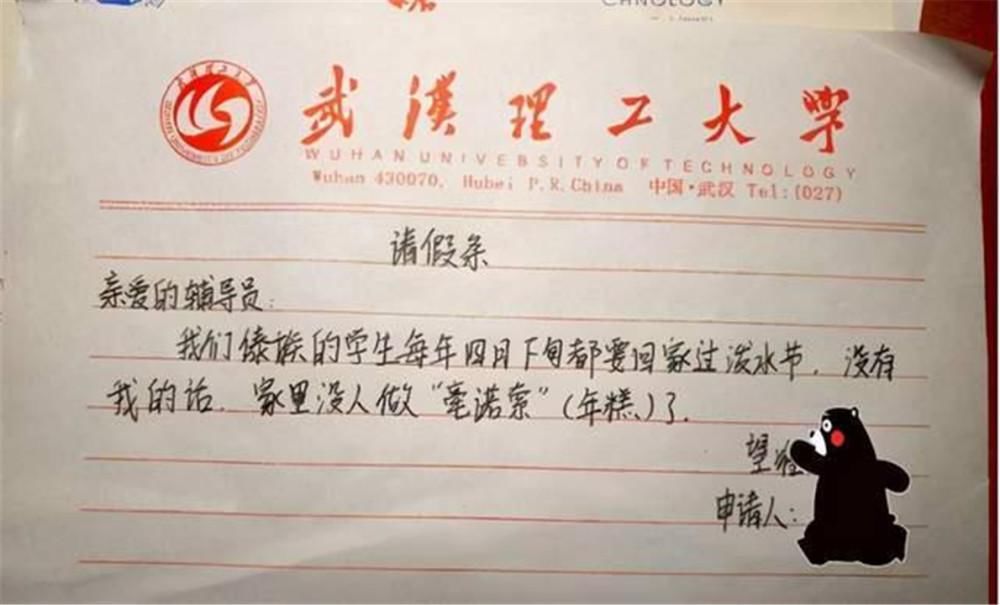 CHNOLOGY
武漢理工大學
WUHAN UNIVERSITY OF TECHNOLOGY
Wuhan 430070, Hubei P.R.China 中国·武汉 Tel:(027)
请假条
亲爱的辅导员:
我们傣族的学生每年四月下旬都要回家过泼水节,没有
我的话,家里没人做“毫诺索”(年糕)了.
望
申请人: